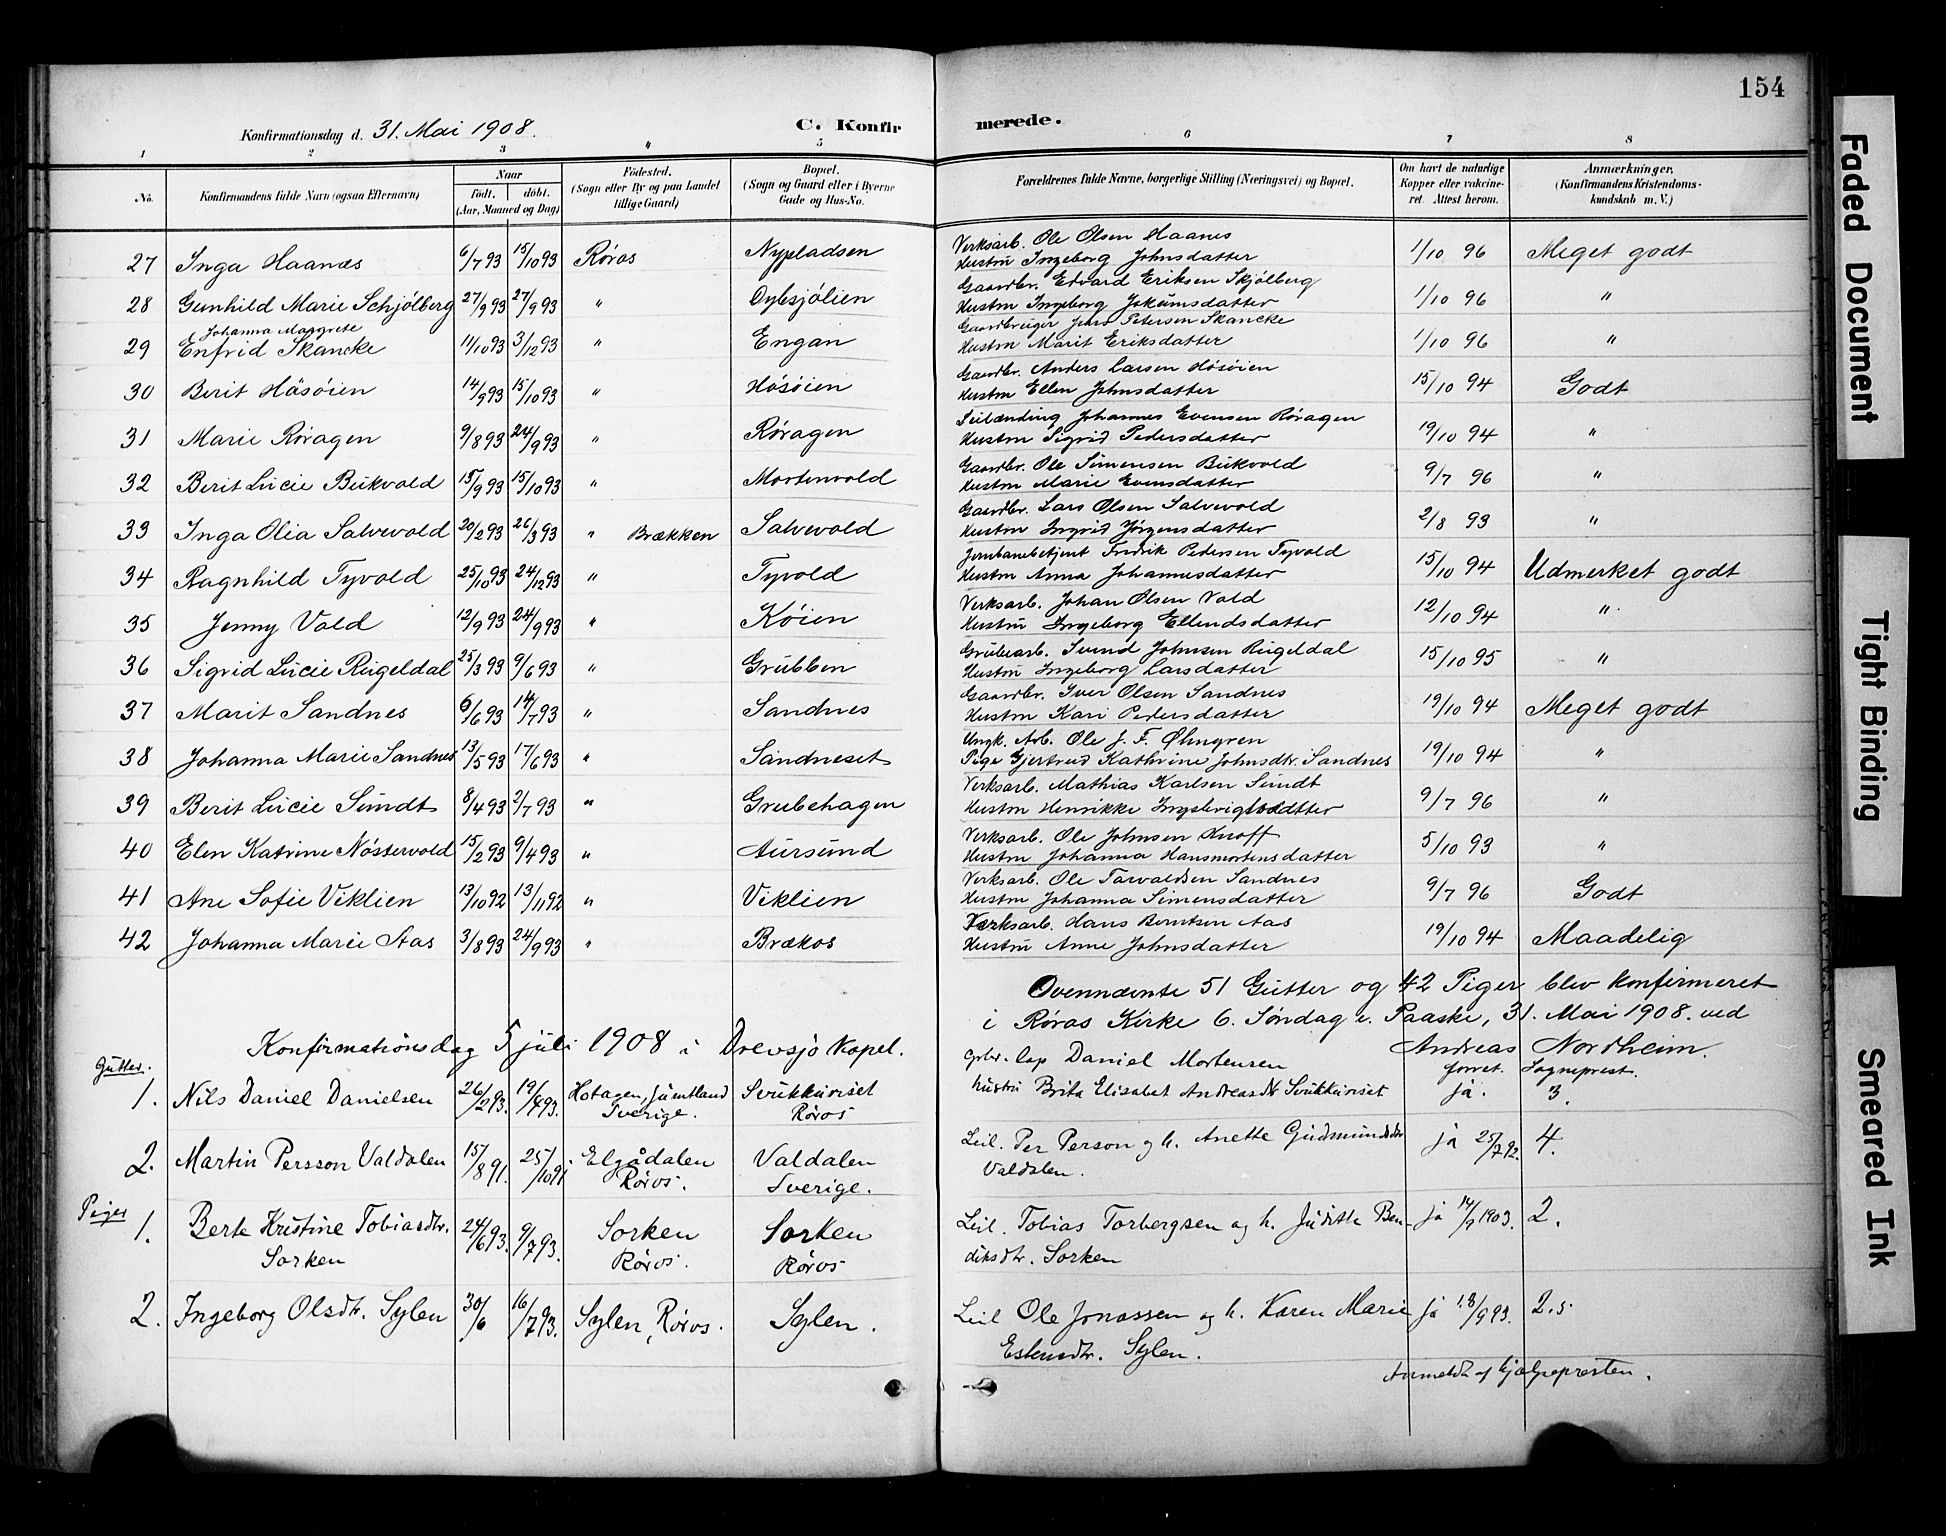 154
Konfirmationsdag d. 31. Mai 1908.
C. Konfirmerede.
1 2 3 4 5 6 7 8
No. Konfirmandens fulde Navn (ogsaa Efternavn) Naar Født. døbt. (Aar, Maaned og Dag) Fødested. (Sogn eller By og paa Landet tillige Gaard) Bopæl. (Sogn og Gaard eller i Byerne Gade og Hus-No. Forældrenes fulde Navne, borgerlige Stilling (Næringsvei) og Bopæl. Om havt de naturlige Kopper eller vakcineret. Attest herom. Anmærkninger. (Konfirmandens Kristendomskundskab m. V.)
27 Inga Haanæs 6/7 93 15/10 93 Røros Nypladsen Verksarb. Ole Olsen Haanes
Hustru Ingeborg Johnsdatter 1/10 96 Meget godt
28 Gunhild Marie Schjølberg 27/9 93 27/9 93 " Gaardbr. Edvard Eriksen Skjølberg
Hustru Ingeborg Jokumsdatter 1/10 96 "
Johanna Margrete
29 Enfrid Skancke 11/10 93 3/12 93 " Engan Gaardbruger Jens Petersen Skancke
Hustru Marit Eriksdatter 1/10 96 "
30 Berit Håsøien 14/9 93 15/10 93 " Håsøien Gaardbr. Anders Larsen Hosøien
Hustru Ellen Johnsdatter 15/10 94 Godt
31 Marie Røragen 9/8 93 24/9 93 " Røragen Leilænding Johannes Evensen Røragen
Hustru Sigrid Pedersdatter 19/10 94 "
32 Berit Lucie Bukvold 15/9 93 15/10 93 " Mortenvold Gaardbr. Ole Simensen Bukvold
Hustru Marie Evensdatter 9/7 96 "
33 Inga Olia Salvevold 20/2 93 26/3 93 " Brækken Salvevold Gaardbr. Lars Olsen Salvevold
Hustru Ingrid Jørgensdatter 2/8 93 "
34 Ragnhild Tyvold 25/10 93 24/12 93 " Tyvold Jernbanebetjent Fredrik Pedersen Tyvold
Hustru Anna Johannesdatter 15/10 94 Udmerket godt
35 Jenny Vold 12/9 93 24/9 93 " Køien Verksarb. Johan Olsen Vold
Hustru Ingeborg Ellendsdatter 12/10 94 "
36 Sigrid Lucie Rugeldal 25/3 93 9/6 93 " Grubben Grubearb. Svend Johnsen Rugeldal
Hustru Ingeborg Larsdatter 15/10 95 "
37 Marit Sandnes 6/6 93 14/7 93 " Sandnes Gaardbr. Iver Olsen Sandnes
Hustru Kari Pedersdatter 19/10 94 Meget godt
38 Johanna Marie Sandnes 13/5 93 17/6 93 " Sandneset Ungk. Arb. Ole J. F. Øhngren
Pige Gjertrud Kathrine Johnsdtr. Sandnes 19/10 94 "
39 Berit Lucie Sundt 8/4 93 2/7 93 " Grubehagen Verksarb. Mathias Karlsen Sundt
Hustru Henrikke 9/7 96 "
40 Elen Katrine Nøstervold 15/2 93 9/4 93 " Aursund Verksarb. Ole Johnsen Knoff
Hustru Johanna Hansmortensdatter 5/10 93 "
41 Ane Sofie Viklien 13/10 92 13/11 92 " Viklien Verksarb. Ole Tarvaldsen Sandnes
Hustru Johanna Simensdatter 9/7 96 Godt
42 Johanna Marie Aas 3/8 93 24/9 93 " Brækos Værksarb. Hans Berntsen Aas
Hustru Anne Johnsdatter 19/10 94 Maadelig
Ovennævnte 51 Gutter og 42 Piger blev konfirmeret
i Røros Kirke 6. Søndag e. Paaske, 31. Mai 1908. ved
Andreas Nordheim.
Sogneprest.
Konfirmationsdag 5 juli 1908 i Drevsjø Kapel.
Gutter.
1. Nils Daniel Danielsen 26/2 93. 19/4 93. Hotagen, Jæmtland Sverige. Svukkuriset Røros Grbr. lap Daniel Mortensen
hustru Brita Elisabet Andreasdtr Svukkuriset forret. ja. 3.
2. Martin Persson Valdalen 15/8 91. 25/10 91 Elgådalen Røros. Valdalen Sverige. Leil. Per Person og h. Anette Gudmundsdtr
Valdalen. ja 25/7 92. 4.
Piger
1. Berte Kristine Tobiasdtr. Sorken 24/6 93. 9/7 93. Sorken Røros. Sorken Røros Leil. Tobias Torbergsen og h. Juditte Ben-
diksdtr. Sorken ja 14/9 1903. 2.
2. Ingeborg Olsdtr. Sylen 30/6 16/7 93. Sylen, Røros. Sylen. Leil Ole Jonassen og h. Karen Marie
Estensdtr. Sylen. ja 18/9 93. 2.5
Anmeldt af hjælpepresten.
Faded Document
Tight Binding
Smeared Ink